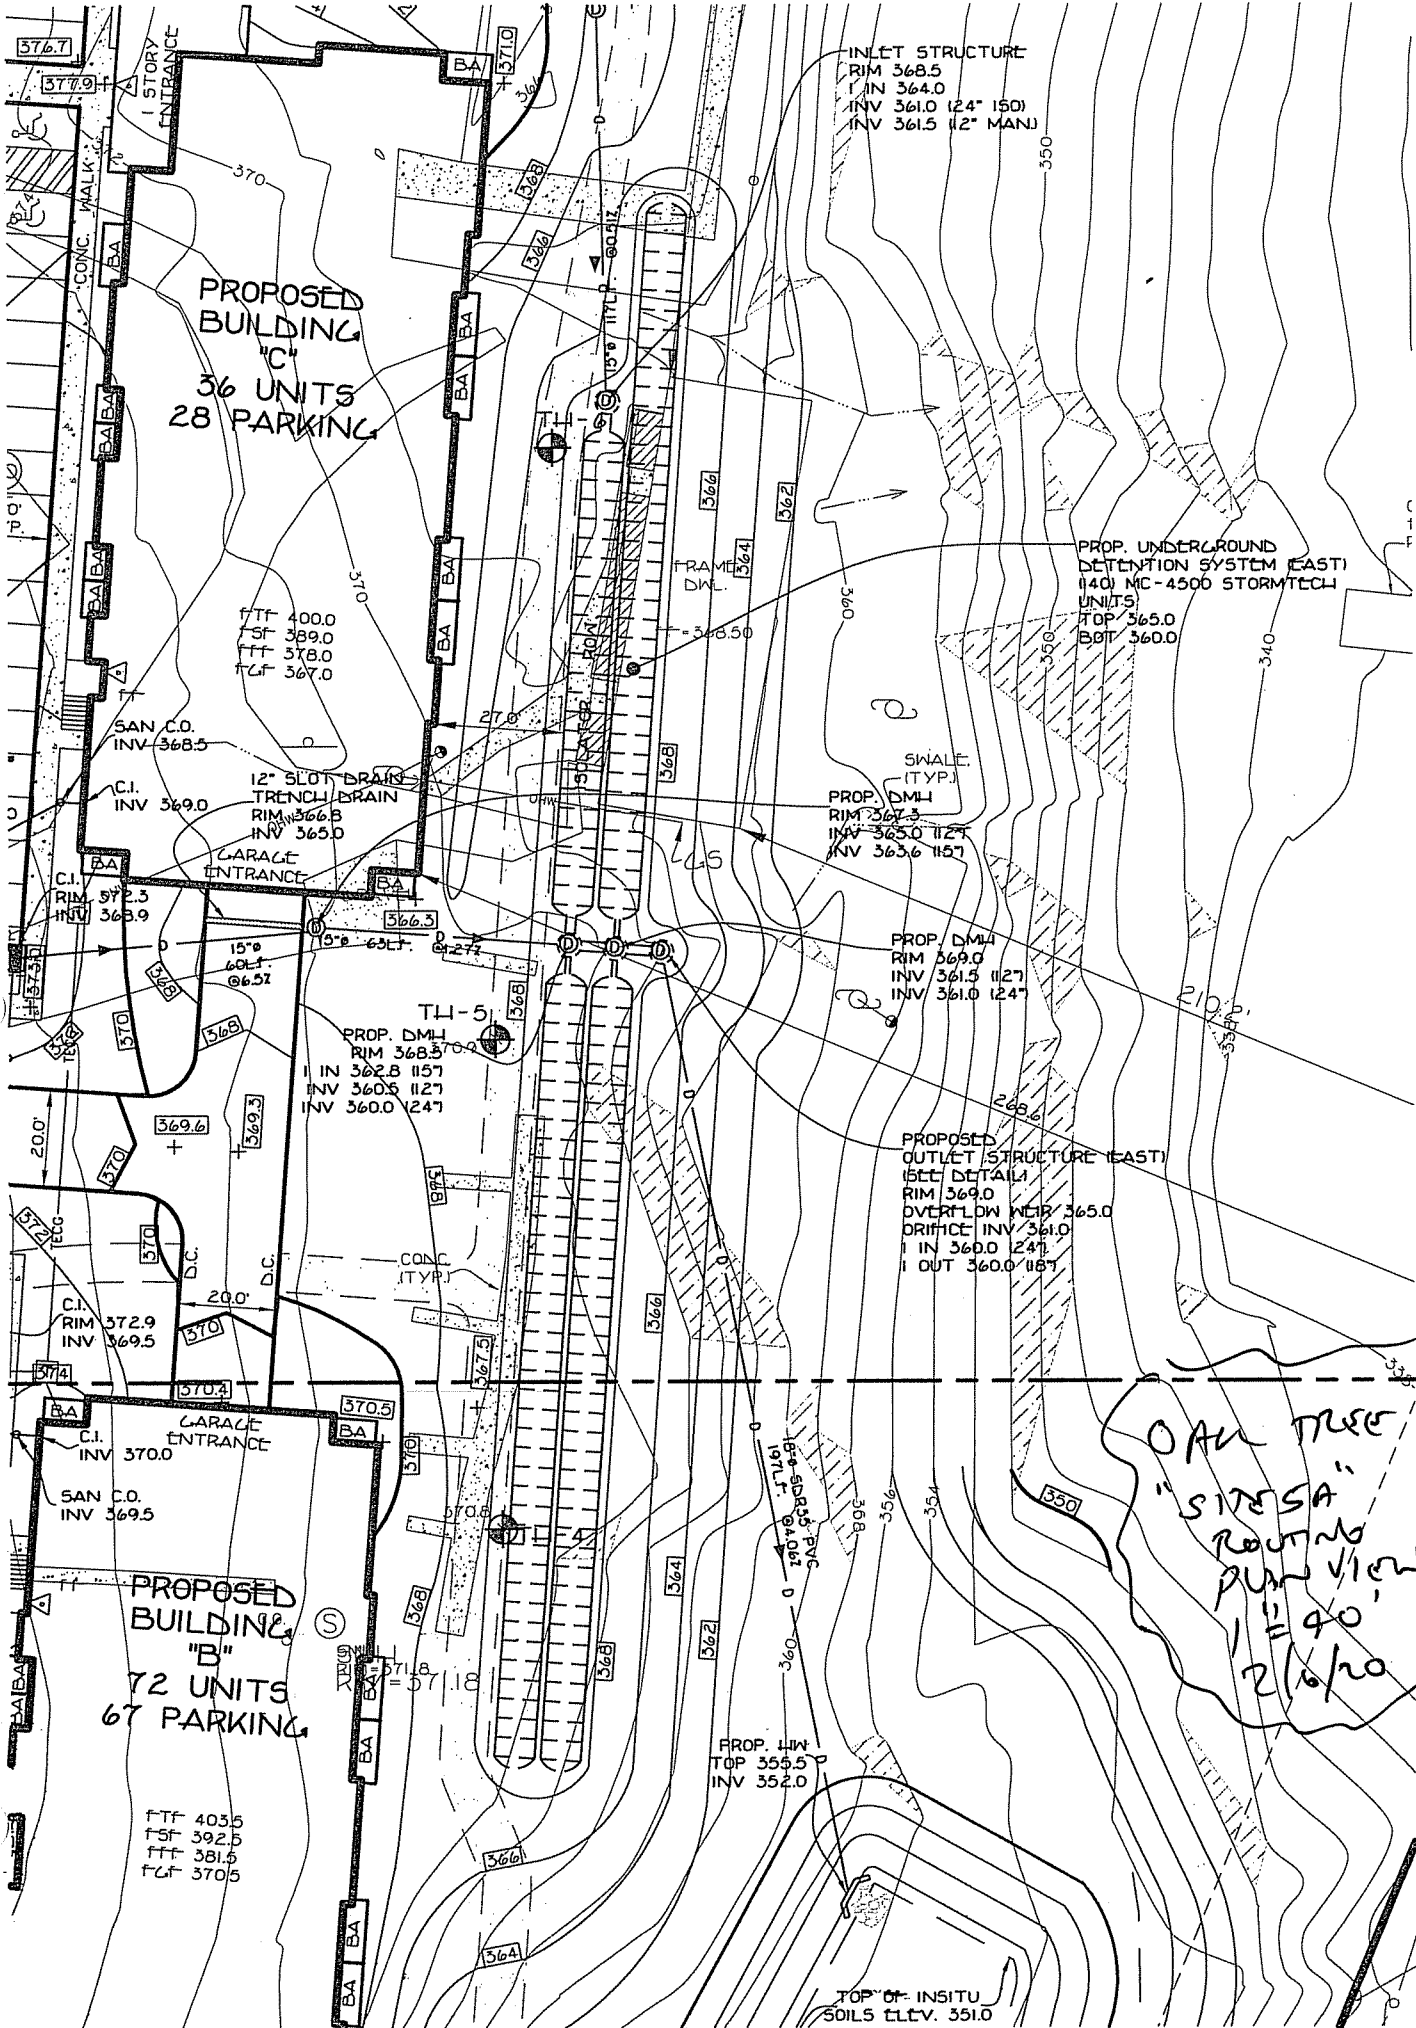 376.7
377.9
1 STORY
ENTRANCE
BA
371.0
CONC. WALK
370
368
366
INLET STRUCTURE
RIM 368.5
I IN 364.0
INV 361.0 (24" ISO)
INV 361.5 (12" MAN.)
350
BA
PROPOSED
BUILDING
"C"
36 UNITS
28 PARKING
BA
BA
BA
BA
15"ø 117L.F. @0.51%
D
366
364
362
FRAME
DWL.
=368.50
360
PROP. UNDERGROUND
DETENTION SYSTEM (EAST)
(140) MC-4500 STORMTECH
UNITS
TOP 365.0
BOT 360.0
350
340
BA
BA
BA
BA
370
FTF 400.0
FSF 389.0
FFF 378.0
FGF 367.0
FF
ISOLATOR ROW
27.0'
368
SAN C.O.
INV 368.5
C.I.
INV 369.0
12" SLOT DRAIN
TRENCH DRAIN
RIM 366.8
INV 365.0
OHW
SWALE
(TYP.)
PROP. DMH
RIM 367.3
INV 365.0 (12")
INV 363.6 (15")
GS
BA
GARAGE
ENTRANCE
BA
C.I.
RIM 372.3
INV 368.9
366.3
15"ø
60L.F.
@6.5%
15"ø 63L.F. @1.27%
PROP. DMH
RIM 369.0
INV 361.5 (12")
INV 361.0 (24")
210.2'
338
368
370
368
368
TH-5
370.9
PROP. DMH
RIM 368.5
I IN 362.8 (15")
INV 360.5 (12")
INV 360.0 (24")
268.6
20.0'
369.6
369.3
370
PROPOSED
OUTLET STRUCTURE (EAST)
(SEE DETAIL)
RIM 369.0
OVERFLOW WEIR 365.0
ORIFICE INV 361.0
I IN 360.0 (24")
I OUT 360.0 (18")
368
372
TECG
370
D.C.
D.C.
20.0'
CONC.
(TYP.)
366
C.I.
RIM 372.9
INV 369.5
370
367.5
374
370.4
370.5
BA
GARAGE
ENTRANCE
BA
C.I.
INV 370.0
SAN C.O.
INV 369.5
370
370.8
TH-4
18"ø SDR35 PVC
197L.F. @4.06%
358
356
354
350
338
OAK TREE
"SITE 5A"
ROUTING
PLAN VIEW
1"=40'
2/6/20
FF
PROPOSED
BUILDING
"B"
72 UNITS
67 PARKING
S
368
364
362
360
368
BA
BA
BA
BA
PROP. HW
TOP 355.5
INV 352.0
FTF 403.5
FSF 392.5
FFF 381.5
FGF 370.5
366
364
BA
BA
TOP OF INSITU
SOILS ELEV. 351.0